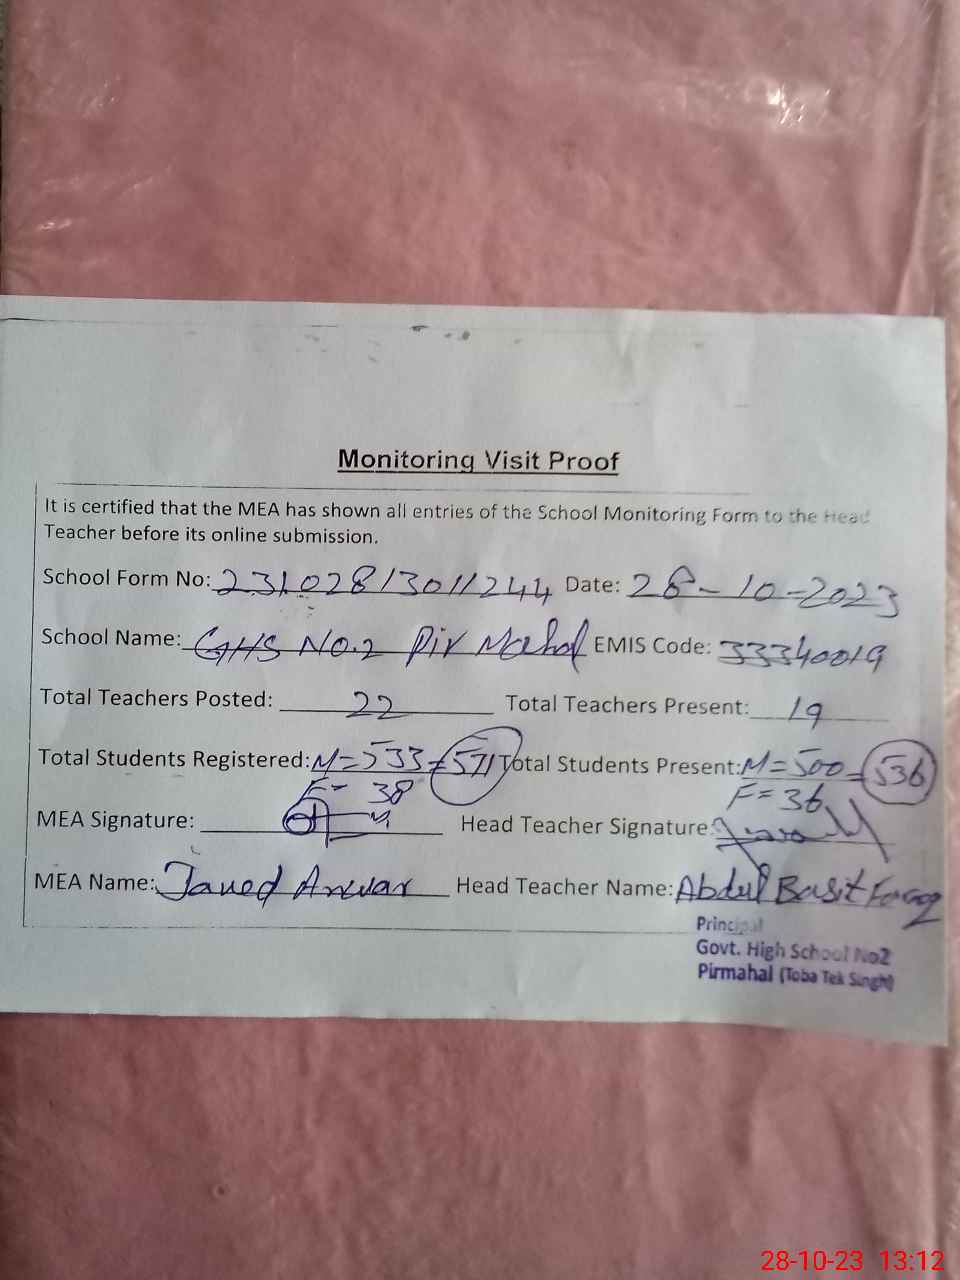 Monitoring Visit Proof
It is certified that the MEA has shown all entries of the School Monitoring Form to the Head
Teacher before its online submission.
School Form No: 23102813011244 Date: 28-10-2023
School Name: GHS No.2 Pir Mahal EMIS Code: 33340019
Total Teachers Posted: 22 Total Teachers Present: 19
Total Students Registered: M=533=571 Total Students Present: M=500=536
F= 38 F=36
MEA Signature: Head Teacher Signature:
MEA Name: Javed Anwar Head Teacher Name: Abdul Basit Farooq
Principal
Govt. High School No2
Pirmahal (Toba Tek Singh)
28-10-23 13:12